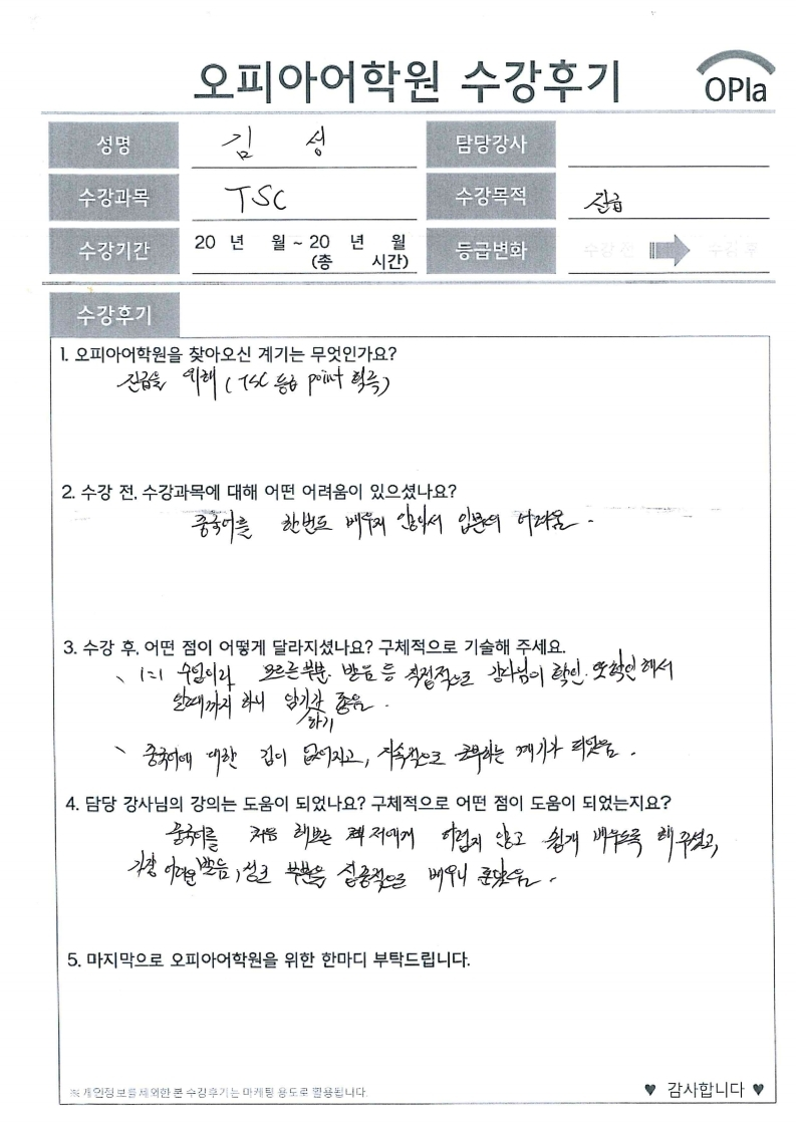 오피아어학원 수강후기
OPIa
성명 김 성 담당강사
수강과목 TSC 수강목적 진급
수강기간 20 년 월 ~ 20 년 월 등급변화 수강 전 수강 후
(총 시간)
수강후기
1. 오피아어학원을 찾아오신 계기는 무엇인가요?
진급을 위해 (TSC 등급 point 획득)
2. 수강 전, 수강과목에 대해 어떤 어려움이 있으셨나요?
중국어를 한번도 배우지 않아서 입문의 어려움.
3. 수강 후, 어떤 점이 어떻게 달라지셨나요? 구체적으로 기술해 주세요.
、 1:1 수업이라 모르는부분. 발음 등 직접적으로 강사님이 확인. 또확인해서
알때까지 하니 암기 좋음.
하기
、 중국어에 대한 겁이 없어지고, 지속적으로 공부하는 계기가 되었음.
4. 담당 강사님의 강의는 도움이 되었나요? 구체적으로 어떤 점이 도움이 되었는지요?
중국어를 처음 해보는 저에게 어렵지 않고 쉽게 배우도록 해 주셨고,
가장 어려운 발음, 성조 부분을 집중적으로 배우니 좋았음.
5. 마지막으로 오피아어학원을 위한 한마디 부탁드립니다.
※ 개인정보를 제외한 본 수강후기는 마케팅 용도로 활용됩니다.
♥ 감사합니다 ♥